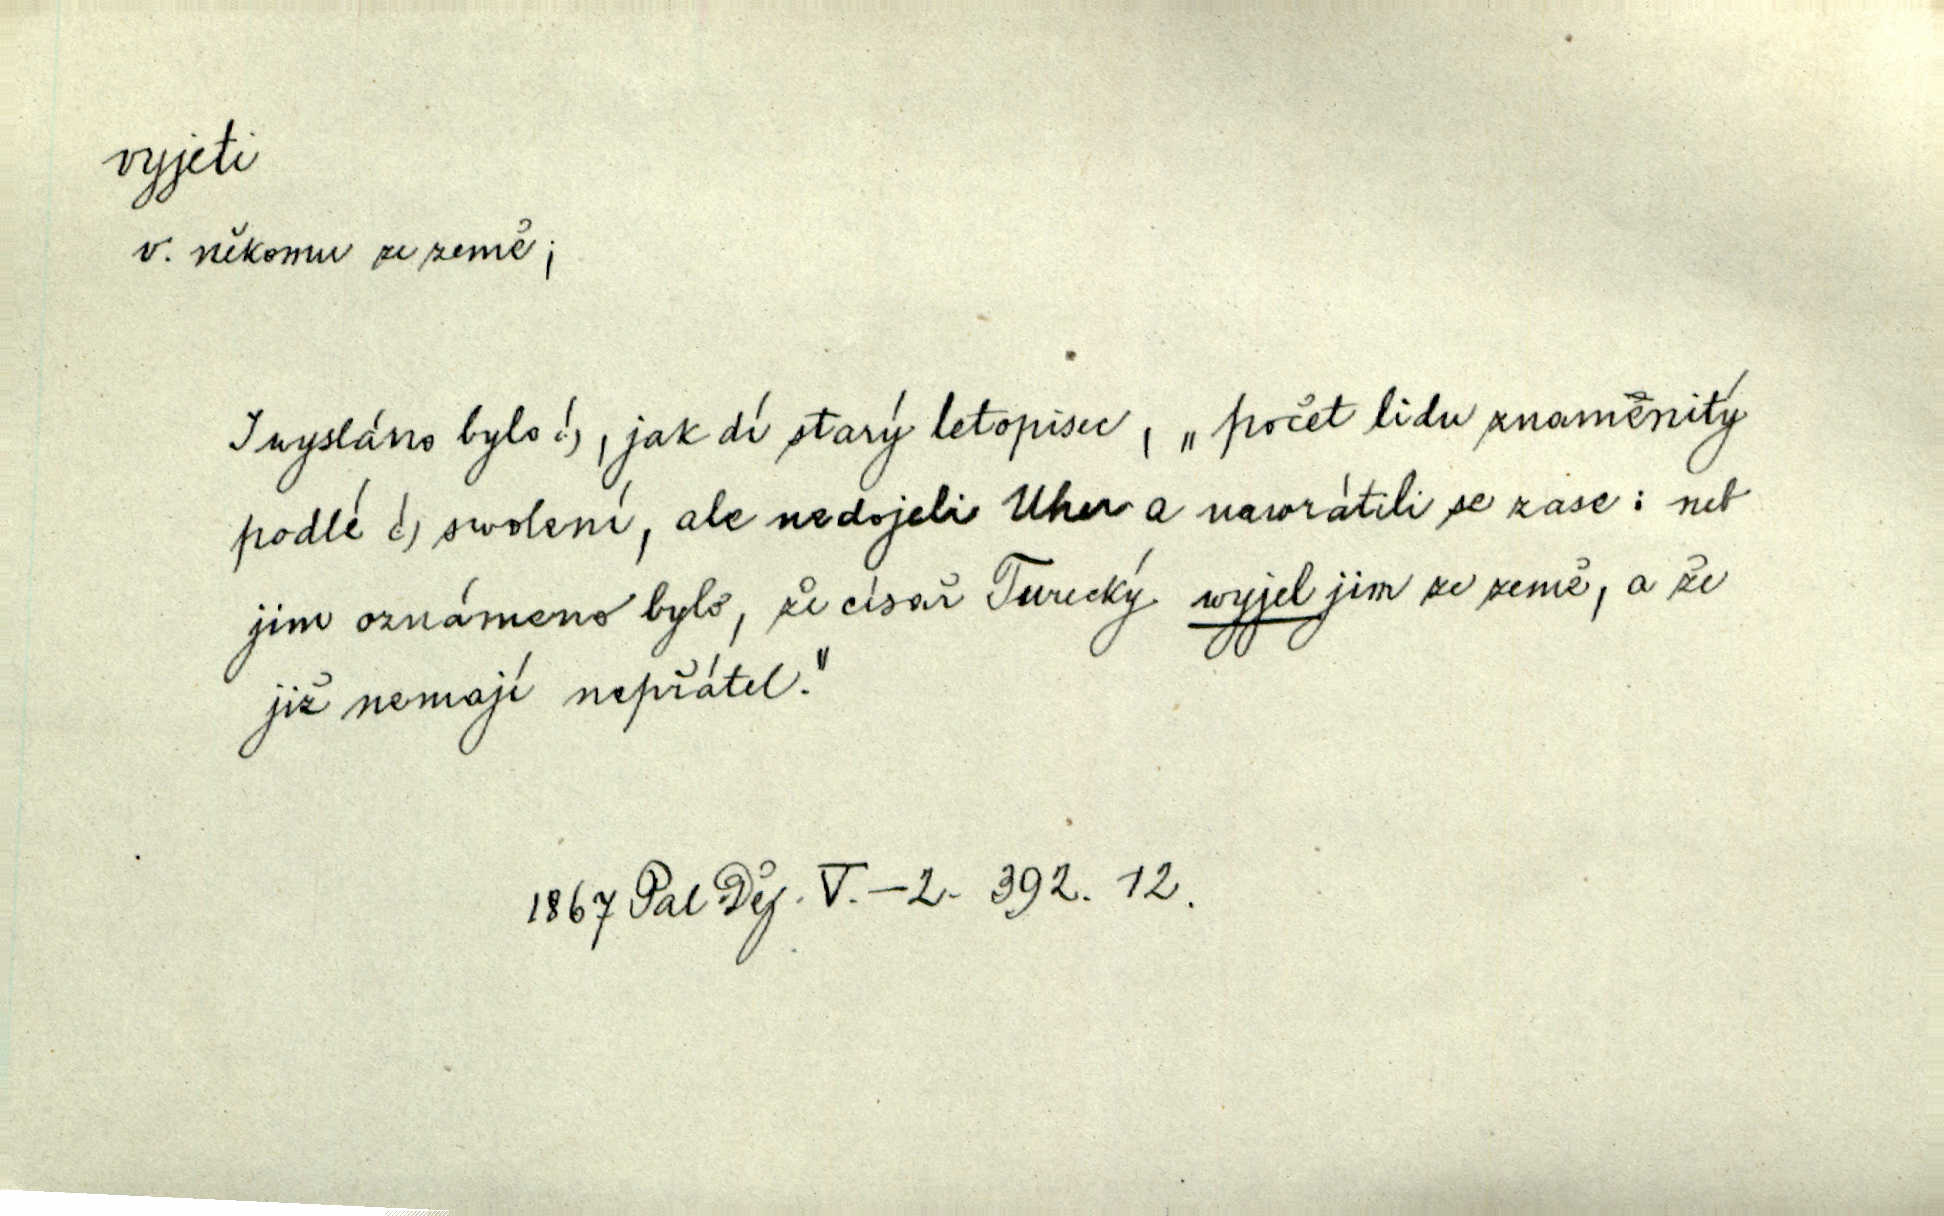 vyjeti
v. někomu ze země;
I wysláno bylo !), jak dí starý letopisec, „počet lidu znaměnitý
podlé !) swolení, ale nedojeli Uher a nawrátili se zase: neb
jim oznámeno bylo, že císař Turecký wyjel jim ze země, a že
již nemají nepřátel."
1867 Pal Děj. V.-2. 392. 12.